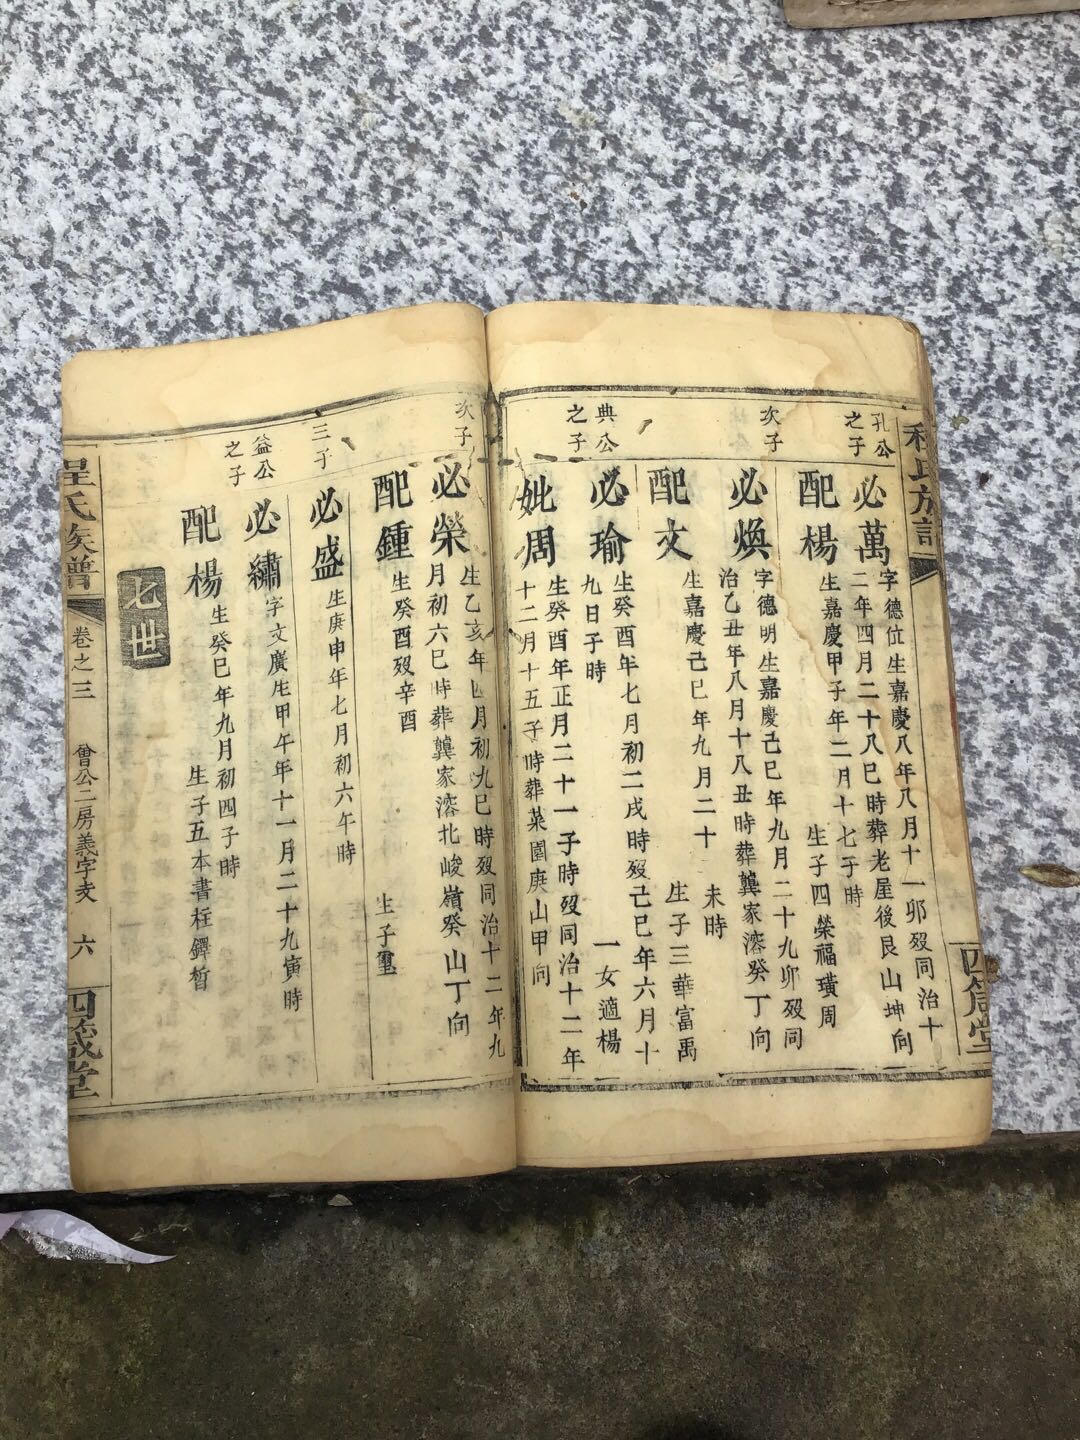 程氏族譜
四箴堂
孔公
之子
必萬
字德位生嘉慶八年八月十一卯殁同治十
二年四月二十八巳時葬老屋後艮山坤向
配楊
生嘉慶甲子年二月十七子時
生子四榮福璜周
次子
必煥
字德明生嘉慶己巳年九月二十九卯殁同
治乙丑年八月十八丑時葬龔家溶癸丁向
配文
生嘉慶己巳年九月二十
未時
生子三華富禹
典公
之子
必瑜
生癸酉年七月初二戌時殁己巳年六月十
九日子時
一女適楊
妣周
生癸酉年正月二十一子時殁同治十二年
十二月十五子時葬菜園庚山甲向
次子
必榮
生乙亥年四月初九巳時殁同治十二年九
月初六巳時葬龔家溶北峻嶺癸山丁向
配鍾
生癸酉殁辛酉
生子璽
三子
必盛
生庚申年七月初六午時
益公
之子
必繡
字文廣生甲午年十一月二十九寅時
配楊
生癸巳年九月初四子時
生子五本書枉鐸晳
七世
程氏族譜
卷之三
僧公二房義字支
六
四箴堂